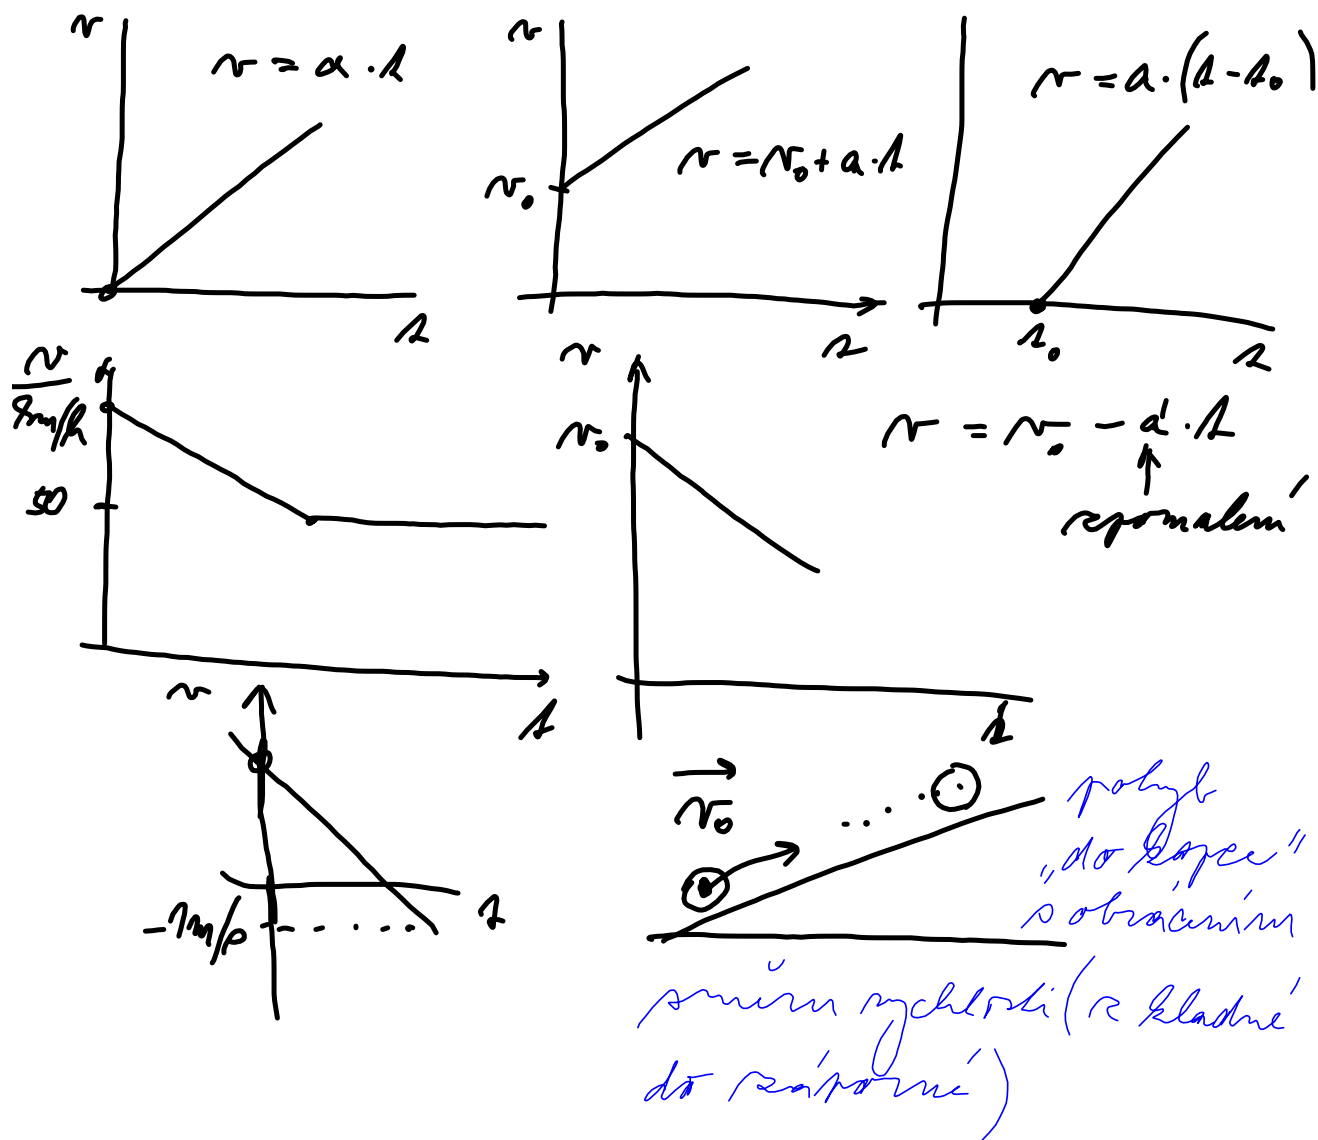 v
v = a · t
t
v
v₀
v = v₀ + a · t
t
v = a · (t - t₀)
t₀
t
v
km/h
50
t
v
v₀
t
v = v₀ - a' · t
zpomalení
v
-1m/s
t
v₀
pohyb
„do kopce"
s obrácením
směru rychlosti (z kladné
do záporné)